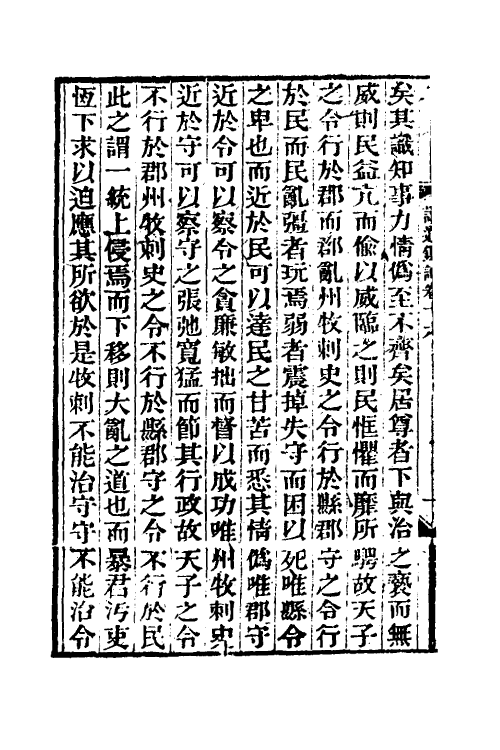 讀通鑑論卷十六
矣其識知事力情僞至不齊矣居尊者下與治之褻而無
威則民益亢而偸以威臨之則民恇懼而靡所騁故天子
之令行於郡而郡亂州牧刺史之令行於縣郡守之令行
於民而民亂彊者玩焉弱者震掉失守而困以死唯縣令
之卑也而近於民可以達民之甘苦而悉其情僞唯郡守
近於令可以察令之貪廉敏拙而督以成功唯州牧刺史
近於守可以察守之張弛寬猛而節其行政故天子之令
不行於郡州牧刺史之令不行於縣郡守之令不行於民
此之謂一統上侵焉而下移則大亂之道也而暴君污吏
恆下求以迫應其所欲於是牧刺不能治守守不能治令